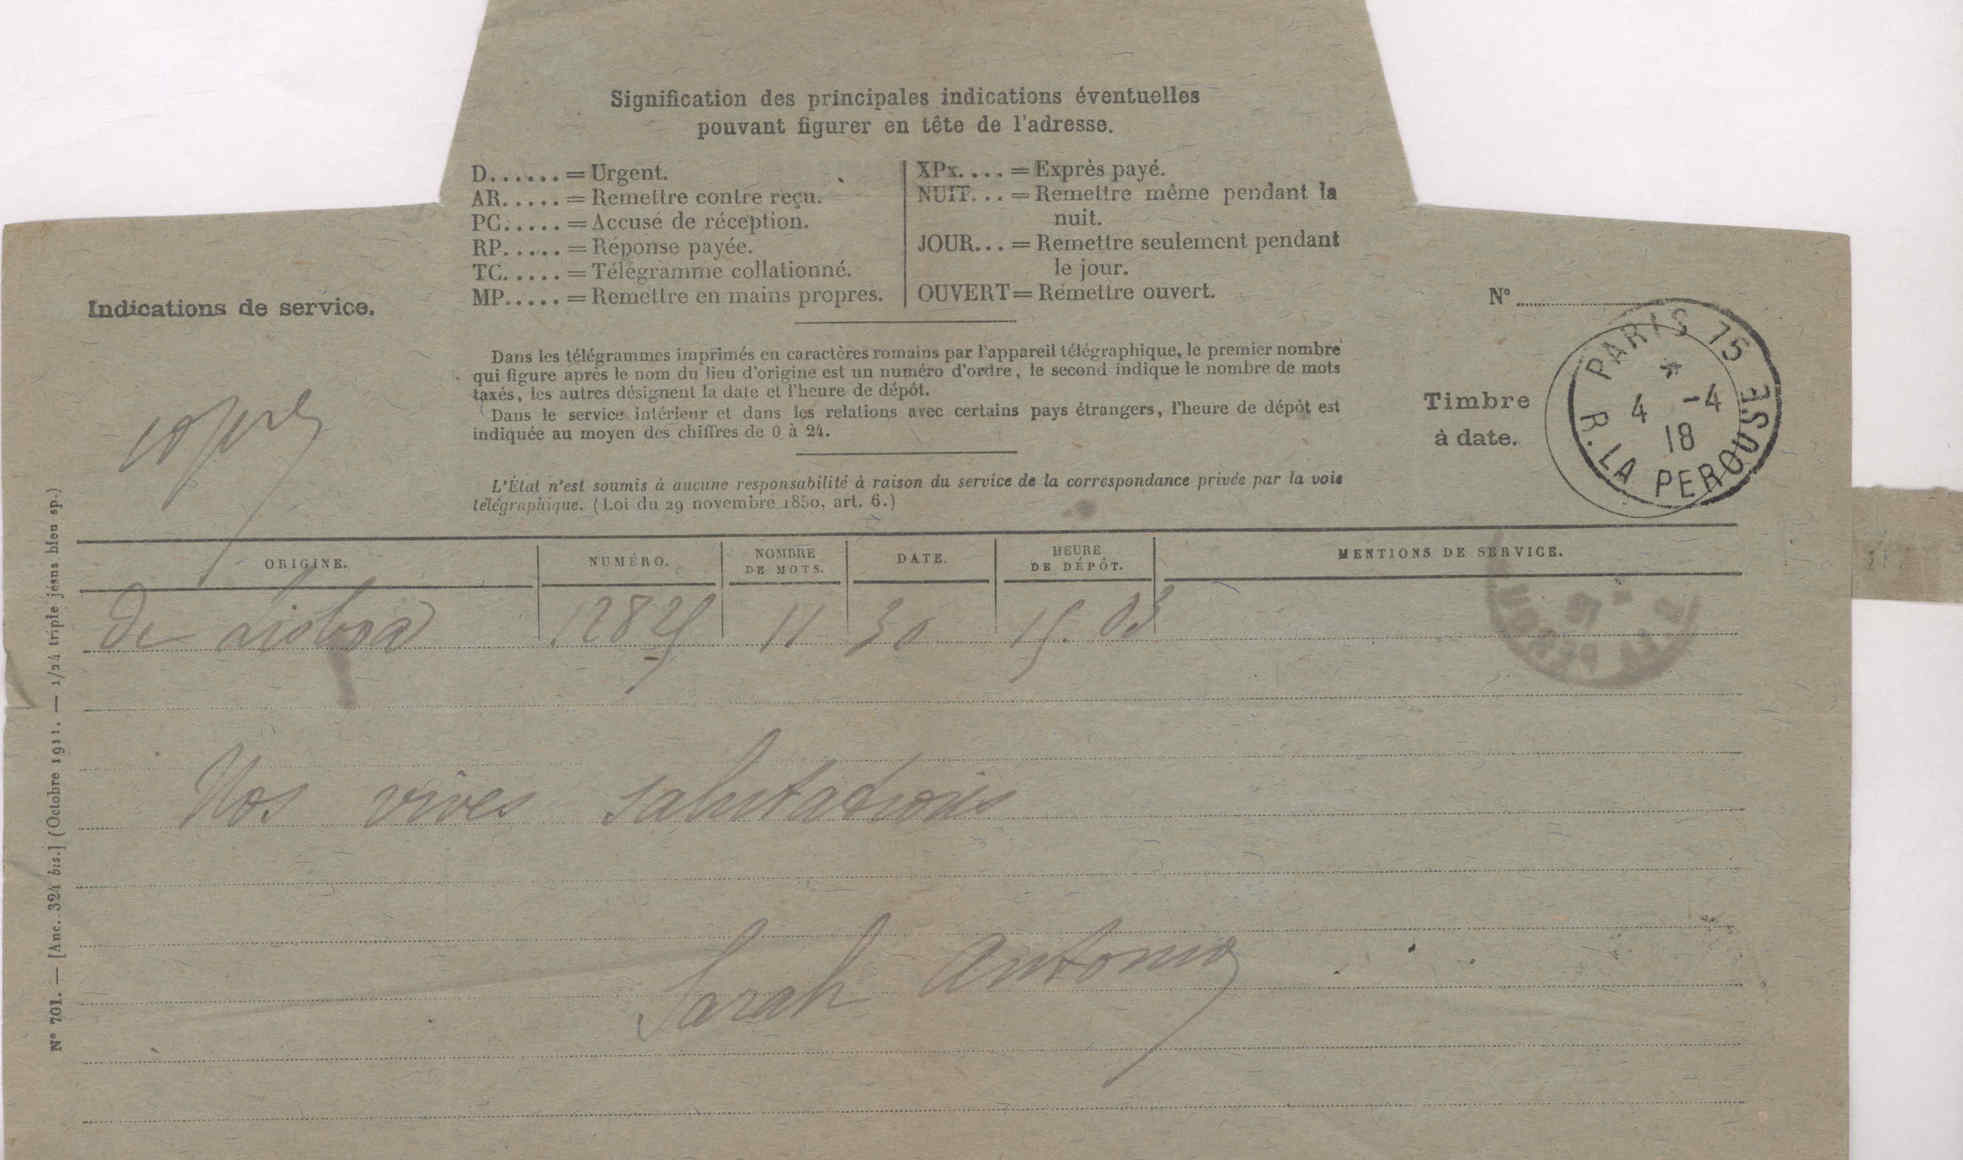 Signification des principales indications éventuelles
pouvant figurer en tête de l'adresse.
D...... = Urgent.
AR..... = Remettre contre reçu.
PC..... = Accusé de réception.
RP..... = Réponse payée.
TC..... = Télégramme collationné.
MP..... = Remettre en mains propres.
XPx.... = Exprès payé.
NUIT... = Remettre même pendant la
nuit.
JOUR... = Remettre seulement pendant
le jour.
OUVERT = Remettre ouvert.
Indications de service.
Dans les télégrammes imprimés en caractères romains par l'appareil télégraphique, le premier nombre
qui figure après le nom du lieu d'origine est un numéro d'ordre, le second indique le nombre de mots
taxés, les autres désignent la date et l'heure de dépôt.
Dans le service intérieur et dans les relations avec certains pays étrangers, l'heure de dépôt est
indiquée au moyen des chiffres de 0 à 24.
L'État n'est soumis à aucune responsabilité à raison du service de la correspondance privée par la voie
télégraphique. (Loi du 29 novembre 1850, art. 6.)
N°
Timbre
à date.
PARIS 75
4 -4
18
R. LA PEROUSE
ORIGINE. NUMÉRO. NOMBRE DE MOTS. DATE. HEURE DE DÉPÔT. MENTIONS DE SERVICE.
De Lisboa 12825 11 30 15.03
Nos vives salutations
Sarah Antonio
N° 701. — [Anc. 324 bis.] (Octobre 1911. — 1/24 triple jésus bleu sp.)